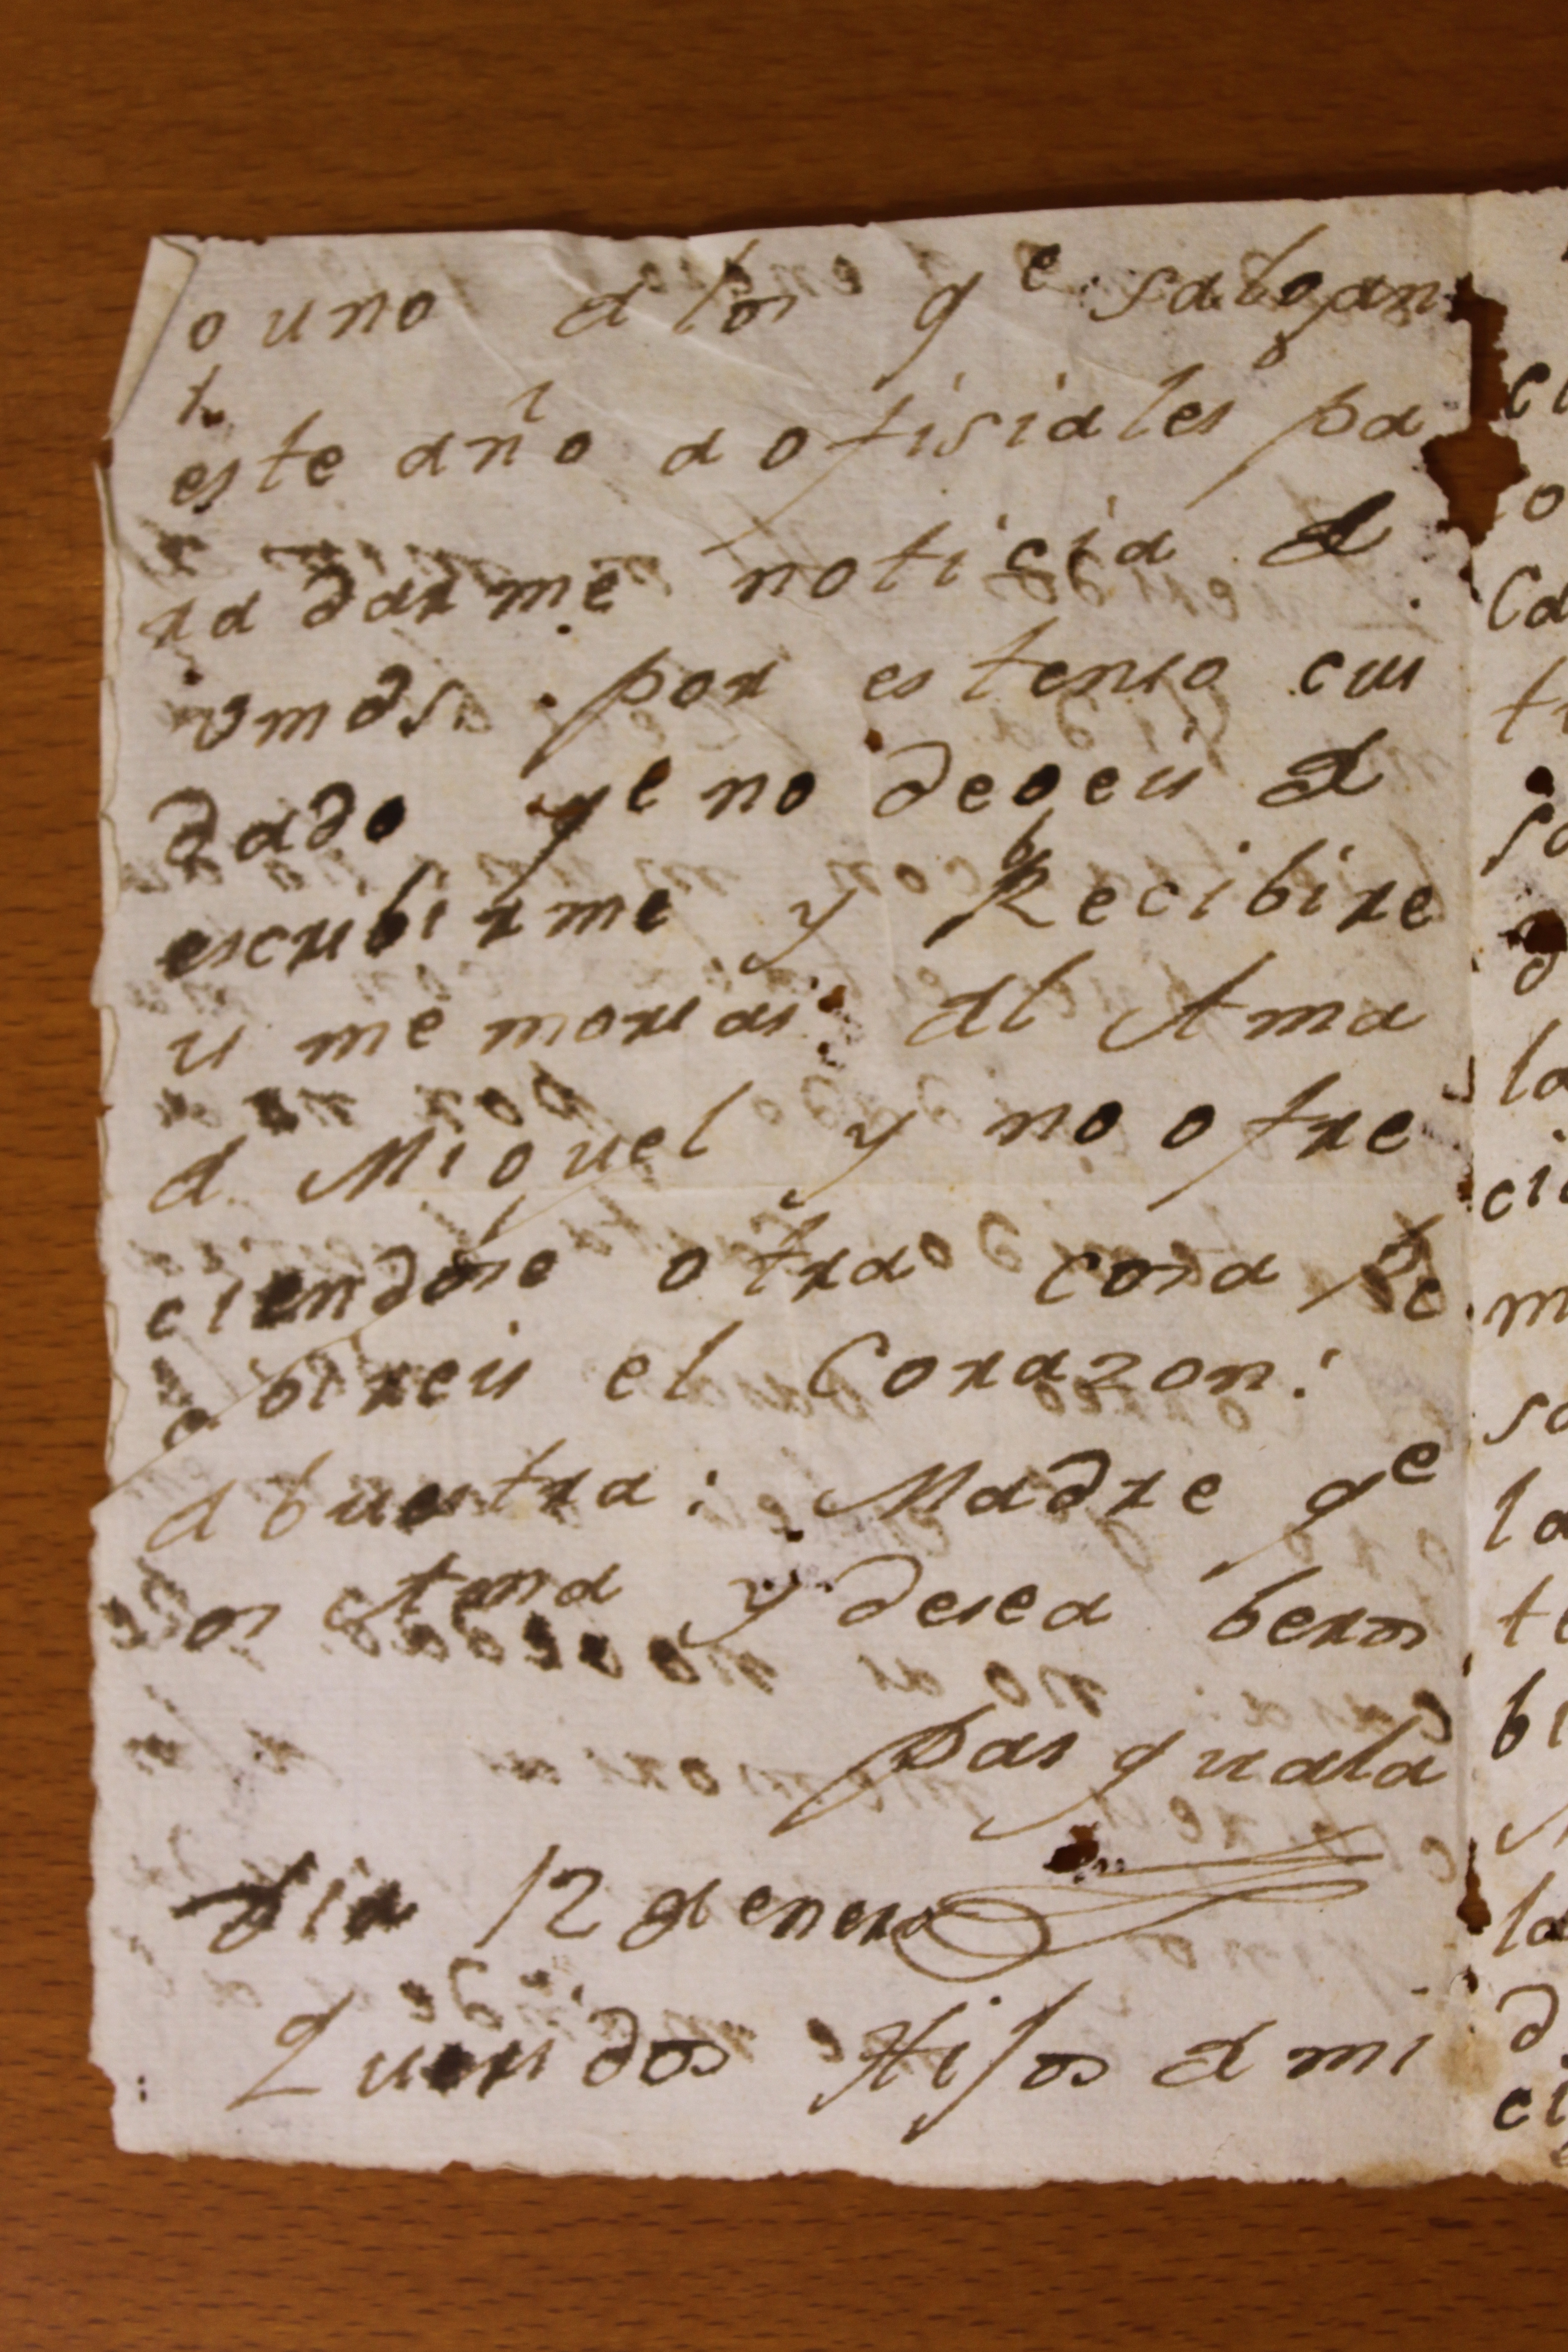 o uno d los qe salgan
este año a ofisiales pa
ra darme noticia d
vmds. por estenso cui
dado qe no degeis d
escribirme y Recibire
is memorias dl Ama
d Miguel y no ofre
ciendose otra cosa Re
cibireis el Corazon:
d buestra: Madre qe
os Ama y desea beros
pasquala
dia 12 d enero
Queridos Hijos d mi